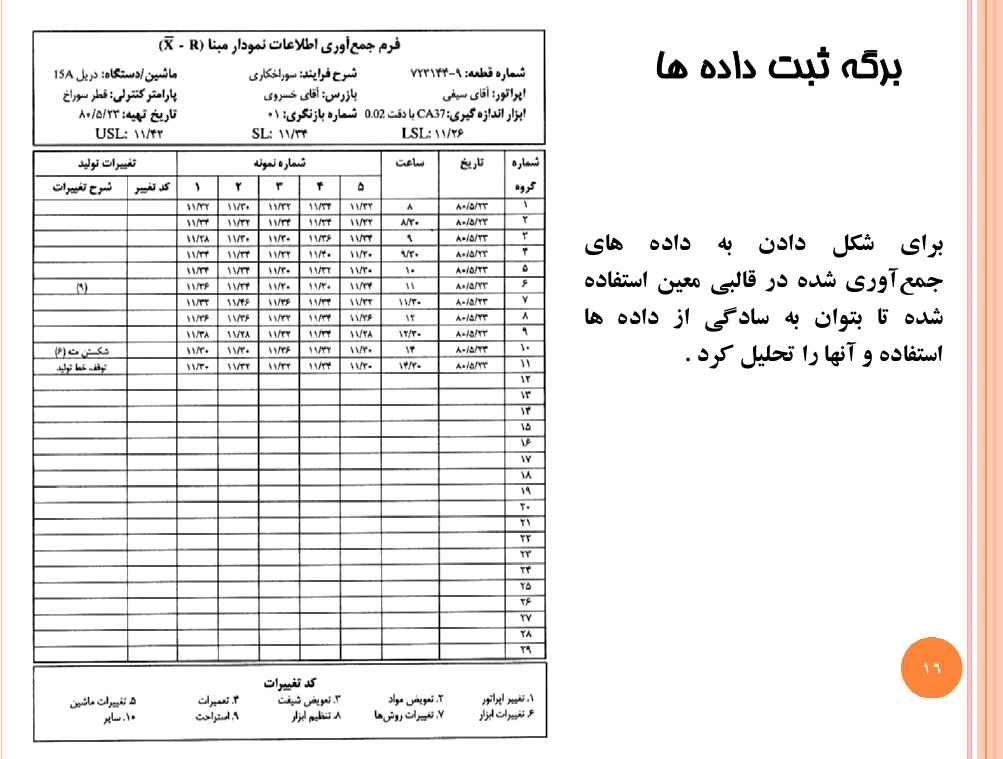 برگه ثبت داده ها
برای شکل دادن به داده های
جمع‌آوری شده در قالبی معین استفاده
شده تا بتوان به سادگی از داده ها
استفاده و آنها را تحلیل کرد .
فرم جمع‌آوری اطلاعات نمودار مبنا (X̅ - R)
شماره قطعه: ۹-۷۲۳۱۴۴ شرح فرایند: سوراخکاری ماشین/دستگاه: دریل 15A
اپراتور: آقای سیفی بازرس: آقای خسروی پارامتر کنترلی: قطر سوراخ
ابزار اندازه گیری: CA37 با دقت 0.02 شماره بازنگری: ۰۱ تاریخ تهیه: ۸۰/۵/۲۳
LSL: ۱۱/۲۶ SL: ۱۱/۳۴ USL: ۱۱/۴۲
شماره گروه تاریخ ساعت شماره نمونه تغییرات تولید
۵ ۴ ۳ ۲ ۱ کد تغییر شرح تغییرات
۱ ۸۰/۵/۲۳ ۸ ۱۱/۳۲ ۱۱/۳۴ ۱۱/۳۲ ۱۱/۳۰ ۱۱/۳۲
۲ ۸۰/۵/۲۳ ۸/۳۰ ۱۱/۳۲ ۱۱/۳۴ ۱۱/۳۴ ۱۱/۳۲ ۱۱/۳۴
۳ ۸۰/۵/۲۳ ۹ ۱۱/۳۴ ۱۱/۳۶ ۱۱/۳۰ ۱۱/۳۰ ۱۱/۲۸
۴ ۸۰/۵/۲۳ ۹/۳۰ ۱۱/۳۰ ۱۱/۴۰ ۱۱/۳۲ ۱۱/۳۴ ۱۱/۳۴
۵ ۸۰/۵/۲۳ ۱۰ ۱۱/۳۰ ۱۱/۳۲ ۱۱/۳۰ ۱۱/۳۴ ۱۱/۳۴
۶ ۸۰/۵/۲۳ ۱۱ ۱۱/۳۴ ۱۱/۳۰ ۱۱/۳۰ ۱۱/۳۴ ۱۱/۳۶ (۹)
۷ ۸۰/۵/۲۳ ۱۱/۳۰ ۱۱/۳۲ ۱۱/۳۴ ۱۱/۳۶ ۱۱/۴۶ ۱۱/۳۲
۸ ۸۰/۵/۲۳ ۱۲ ۱۱/۳۶ ۱۱/۳۴ ۱۱/۳۲ ۱۱/۳۶ ۱۱/۳۶
۹ ۸۰/۵/۲۳ ۱۲/۳۰ ۱۱/۲۸ ۱۱/۳۴ ۱۱/۳۲ ۱۱/۲۸ ۱۱/۳۸
۱۰ ۸۰/۵/۲۳ ۱۴ ۱۱/۳۰ ۱۱/۳۲ ۱۱/۳۶ ۱۱/۳۰ ۱۱/۳۰ شکستن مته (۶)
۱۱ ۸۰/۵/۲۳ ۱۴/۳۰ ۱۱/۳۰ ۱۱/۳۴ ۱۱/۳۲ ۱۱/۳۲ ۱۱/۳۰ توقف خط تولید
۱۲
۱۳
۱۴
۱۵
۱۶
۱۷
۱۸
۱۹
۲۰
۲۱
۲۲
۲۳
۲۴
۲۵
۲۶
۲۷
۲۸
۲۹
کد تغییرات
۱. تغییر اپراتور ۲. تعویض مواد ۳. تعویض شیفت ۴. تعمیرات ۵. تغییرات ماشین
۶. تغییرات ابزار ۷. تغییرات روش‌ها ۸. تنظیم ابزار ۹. استراحت ۱۰. سایر
۱۶